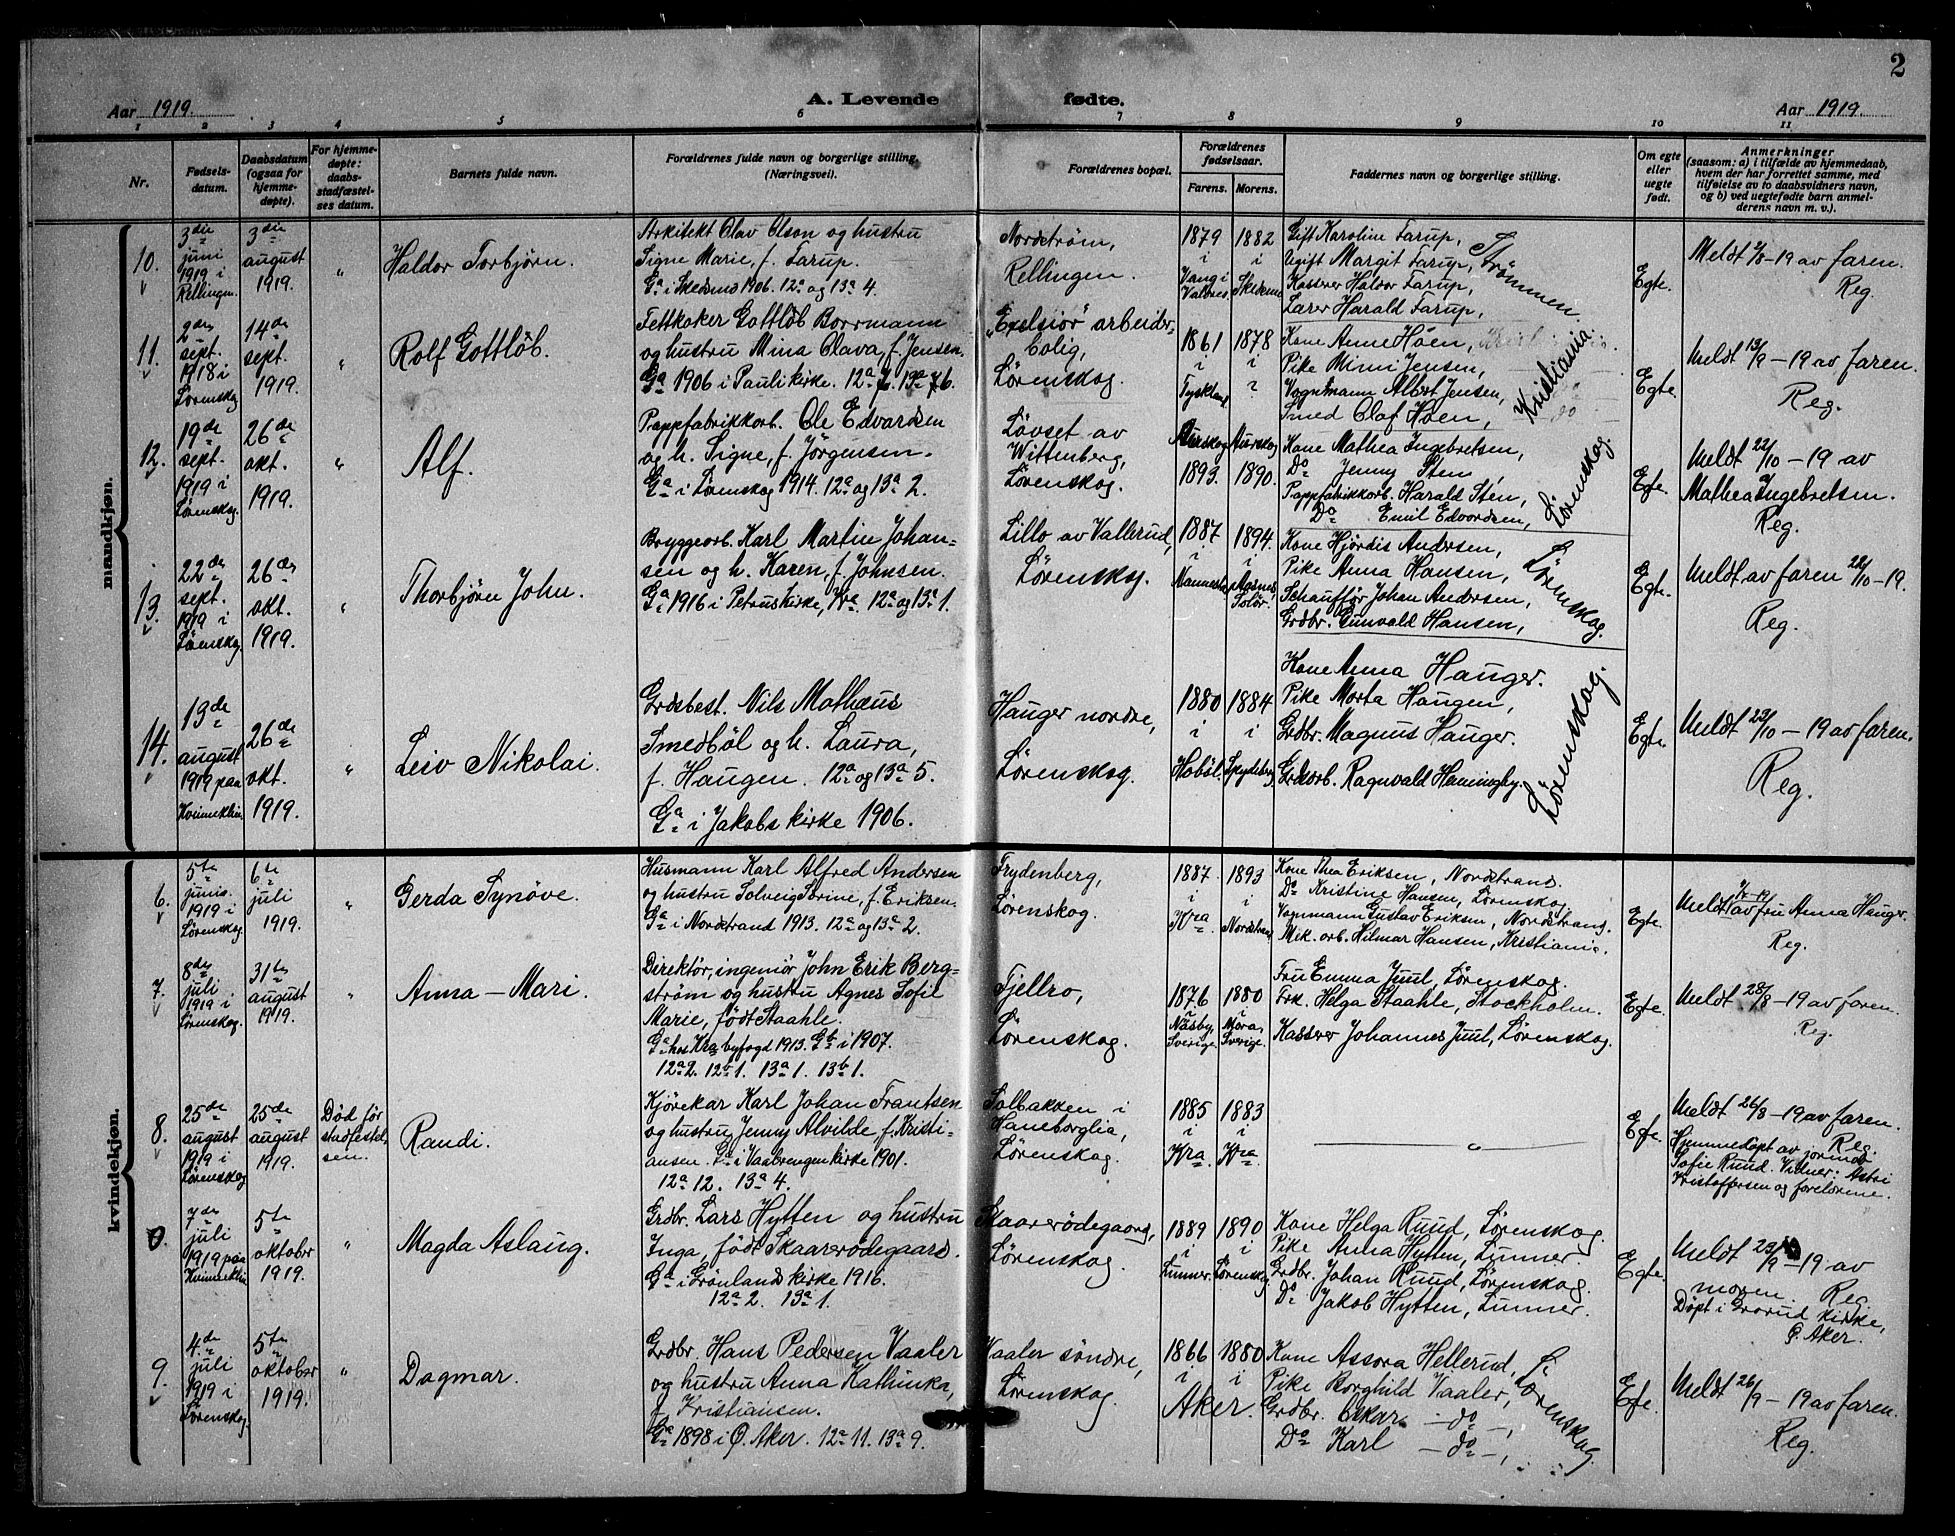 2
Aar 1919.
A. Levende fødte.
Aar 1919.
1 2 3 4 5 6 7 8 9 10 11
Nr.
Fødsels-
datum.
Daabsdatum
(ogsaa for
hjemme-
døpte).
For hjemme-
døpte:
daabs-
stadfæstel-
ses datum.
Barnets fulde navn.
Forældrenes fulde navn og borgerlige stilling.
(Næringsvei).
Forældrenes bopæl.
Forældrenes
fødselsaar.
Farens. Morens.
Faddernes navn og borgerlige stilling.
Om egte
eller
uegte
født.
Anmerkninger
(saasom: a) i tilfælde av hjemmedaab,
hvem der har forrettet samme, med
tilføielse av to daabsvidners navn,
og b) ved uegtefødte barn anmel-
derens navn m. v.).
mandkjøn.
10.
3die
juni
1919 i
Rellingen.
3die
august
1919.
"
Haldor Torbjörn.
Arkitekt Olav Olson og hustru
Signe Marie, f. Farup.
Ga i Skedsmo 1906. 12a og 13a 4.
Nordström,
Rellingen.
1879
i
Vang i
Valdres
1882
i
Skedsmo
Gift Karoline Farup,
Ugift Margit Farup,
Kasserer Haldor Farup,
Lærer Harald Farup,
Strömmen.
Egte.
Meldt 2/8-19 av faren.
Reg.
11.
2den
sept.
1918 i
Lørenskog
14de
sept.
1919.
"
Rolf Gottlöb.
Fettkoker Gottlöb Borrmann
og hustru Mina Olava, f. Jensen.
Ga 1906 i Pauli kirke. 12a 7. 13a 6.
"Exelsiör" arbeider-
bolig,
Lørenskog.
1861
i
Tyskland
1878
i
?
Kone Anne Höen,
Pike Mimi Jensen,
Vognmann Albert Jensen,
Smed Olaf Höen,
Kristiania.
Egte.
Meldt 13/9-19 av faren.
Reg.
12.
19de
sept.
1919 i
Lørenskog.
26de
okt.
1919.
"
Alf.
Pappfabrikkarb. Ole Edvardsen
og h. Signe, f. Jörgensen.
Ga i Lørenskog 1914. 12a og 13a 2.
Lövset av
Wittenberg,
Lørenskog.
Aurskog
1893.
Aurskog
1890.
Kone Mathea Ingebretsen,
Do Jenny Sten,
Pappfabrikkorb. Harald Sten,
Do Emil Edvardsen,
Lørenskog.
Egte.
Meldt 22/10-19 av
Mathea Ingebretsen.
Reg.
13.
22de
sept.
1919 i
Lørenskog
26de
okt.
1919.
"
Thorbjörn John.
Bryggeorb. Karl Martin Johan-
sen og h. Karen, f. Johnsen.
Ga 1916 i Petruskirke, Kra. 12a og 13a 1.
Lillo av Vallerud,
Lørenskog.
1887
i
1894.
i
Solør.
Kone Hjördis Andersen,
Pike Anna Hansen,
Schafför Johan Andersen,
Grdbr. Gunvald Hansen,
Lørenskog.
Egte.
Meldt av faren 22/10-19.
Reg.
14.
19de
august
1919 paa
Kvinneklin.
26de
okt.
1919.
"
Leiv Nikolai.
Grdsbest. Nils Mathæus
Smedböl og h. Laura,
f. Haugen. 12a og 13a 5.
Ga i Jakobs kirke 1906.
Hauger nordre,
Lørenskog.
1880
i
Hobøl.
1884
i
Spydeberg
Kone Anna Hauger.
Pike Marta Haugen,
Grdbr. Magnus Hauger.
Ragnvald
Lørenskog.
Egte.
Meldt 23/10-19 av faren.
Reg.
kvindekjøn.
6.
5te
juni.
1919 i
Lørenskog.
6te
juli
1919.
"
Gerda Synöve.
Husmann Karl Alfred Andersen
og hustru Solveig Sorine, f. Eriksen.
Ga i Nordstrand 1913. 12a og 13a 2.
Frydenberg,
Lørenskog.
1887
i
Kra.
1893
i
Nordstrand
Kone Thea Eriksen, Nordstrand.
Do Kristine Hansen, Lørenskog.
Vognmann Gustav Eriksen, Nordstrand.
Mek. arb. Hilmar Hansen, Kristiania.
Egte.
av fru Anna Hauger.
Reg.
7.
8de
juli
1919 i
Lørenskog.
31te
august
1919.
"
Anna-Mari.
Direktör, ingeniör John Erik Berg-
ström og hustru Agnes Sofie
Marie, født Staahle.
Ga hos Kra byfogd 1913. Gb i 1907.
12a 2. 12b 1. 13a 1. 13b 1.
Fjellro,
Lørenskog.
1876
i
Näsby,
Sverige.
1880
i
Mora,
Sverige.
Fru Emma Juul, Lørenskog.
Frk. Helga Staahle, Stockholm.
Kasserer Johannes Juul, Lørenskog.
Egte.
Meldt 28/8-19 av faren.
Reg.
8.
25de
august
1919 i
Lørenskog
25de
august
1919.
Død før
stadfestel-
sen.
Randi.
Kjörekar Karl Johan Frantsen
og hustru Jenny Alvilde, f. Kristi-
ansen. Ga i Vaalerengen kirke 1901.
12a 12. 13a 4.
Solbakken i
Haneborglia,
Lørenskog.
1885
i
Kra.
1883
i
Kra.
— " —
Egte.
Meldt 26/8-19 av faren.
Reg.
Hjemmedøpt av jormor
Sofie Ruud. Vidner: Astri
Kristoffersen og foreldrene.
0.
7de
juli
1919 paa
Kvinneklin.
5te
oktober
1919.
"
Magda Aslaug.
Grdbr. Lars Hytten og hustru
Inga, født Skaarerödegaard.
Ga i Grönland kirke 1916.
12a 2. 13a 1.
Skaarerödegaard,
Lørenskog.
1889
i
Lunner.
1890
i
Lørenskog
Kone Helga Ruud, Lørenskog.
Pike Anna Hytten, Lunner.
Grdbr. Johan Ruud, Lørenskog.
Do Jakob Hytten, Lunner.
Egte.
Meldt 23/9-19 av
moren. Reg.
Døpt i Grorud kirke,
Ö. Aker.
9.
4de
juli
1919 i
Lørenskog.
5te
oktober
1919.
"
Dagmar.
Grdbr. Hans Pedersen Vaaler
og hustru Anna Kathinka,
f. Kristiansen.
Ga 1898 i Ö. Aker. 12a 11. 13a 9.
Vaaler söndre,
Lørenskog.
1866 1880
i i
Aker.
Kone Assora Hellerud,
Pike Borghild Vaaler,
Grdbr. Oskar —do—,
Do Karl —do—,
Lørenskog.
Egte.
Meldt 26/9-19 av faren.
Reg.